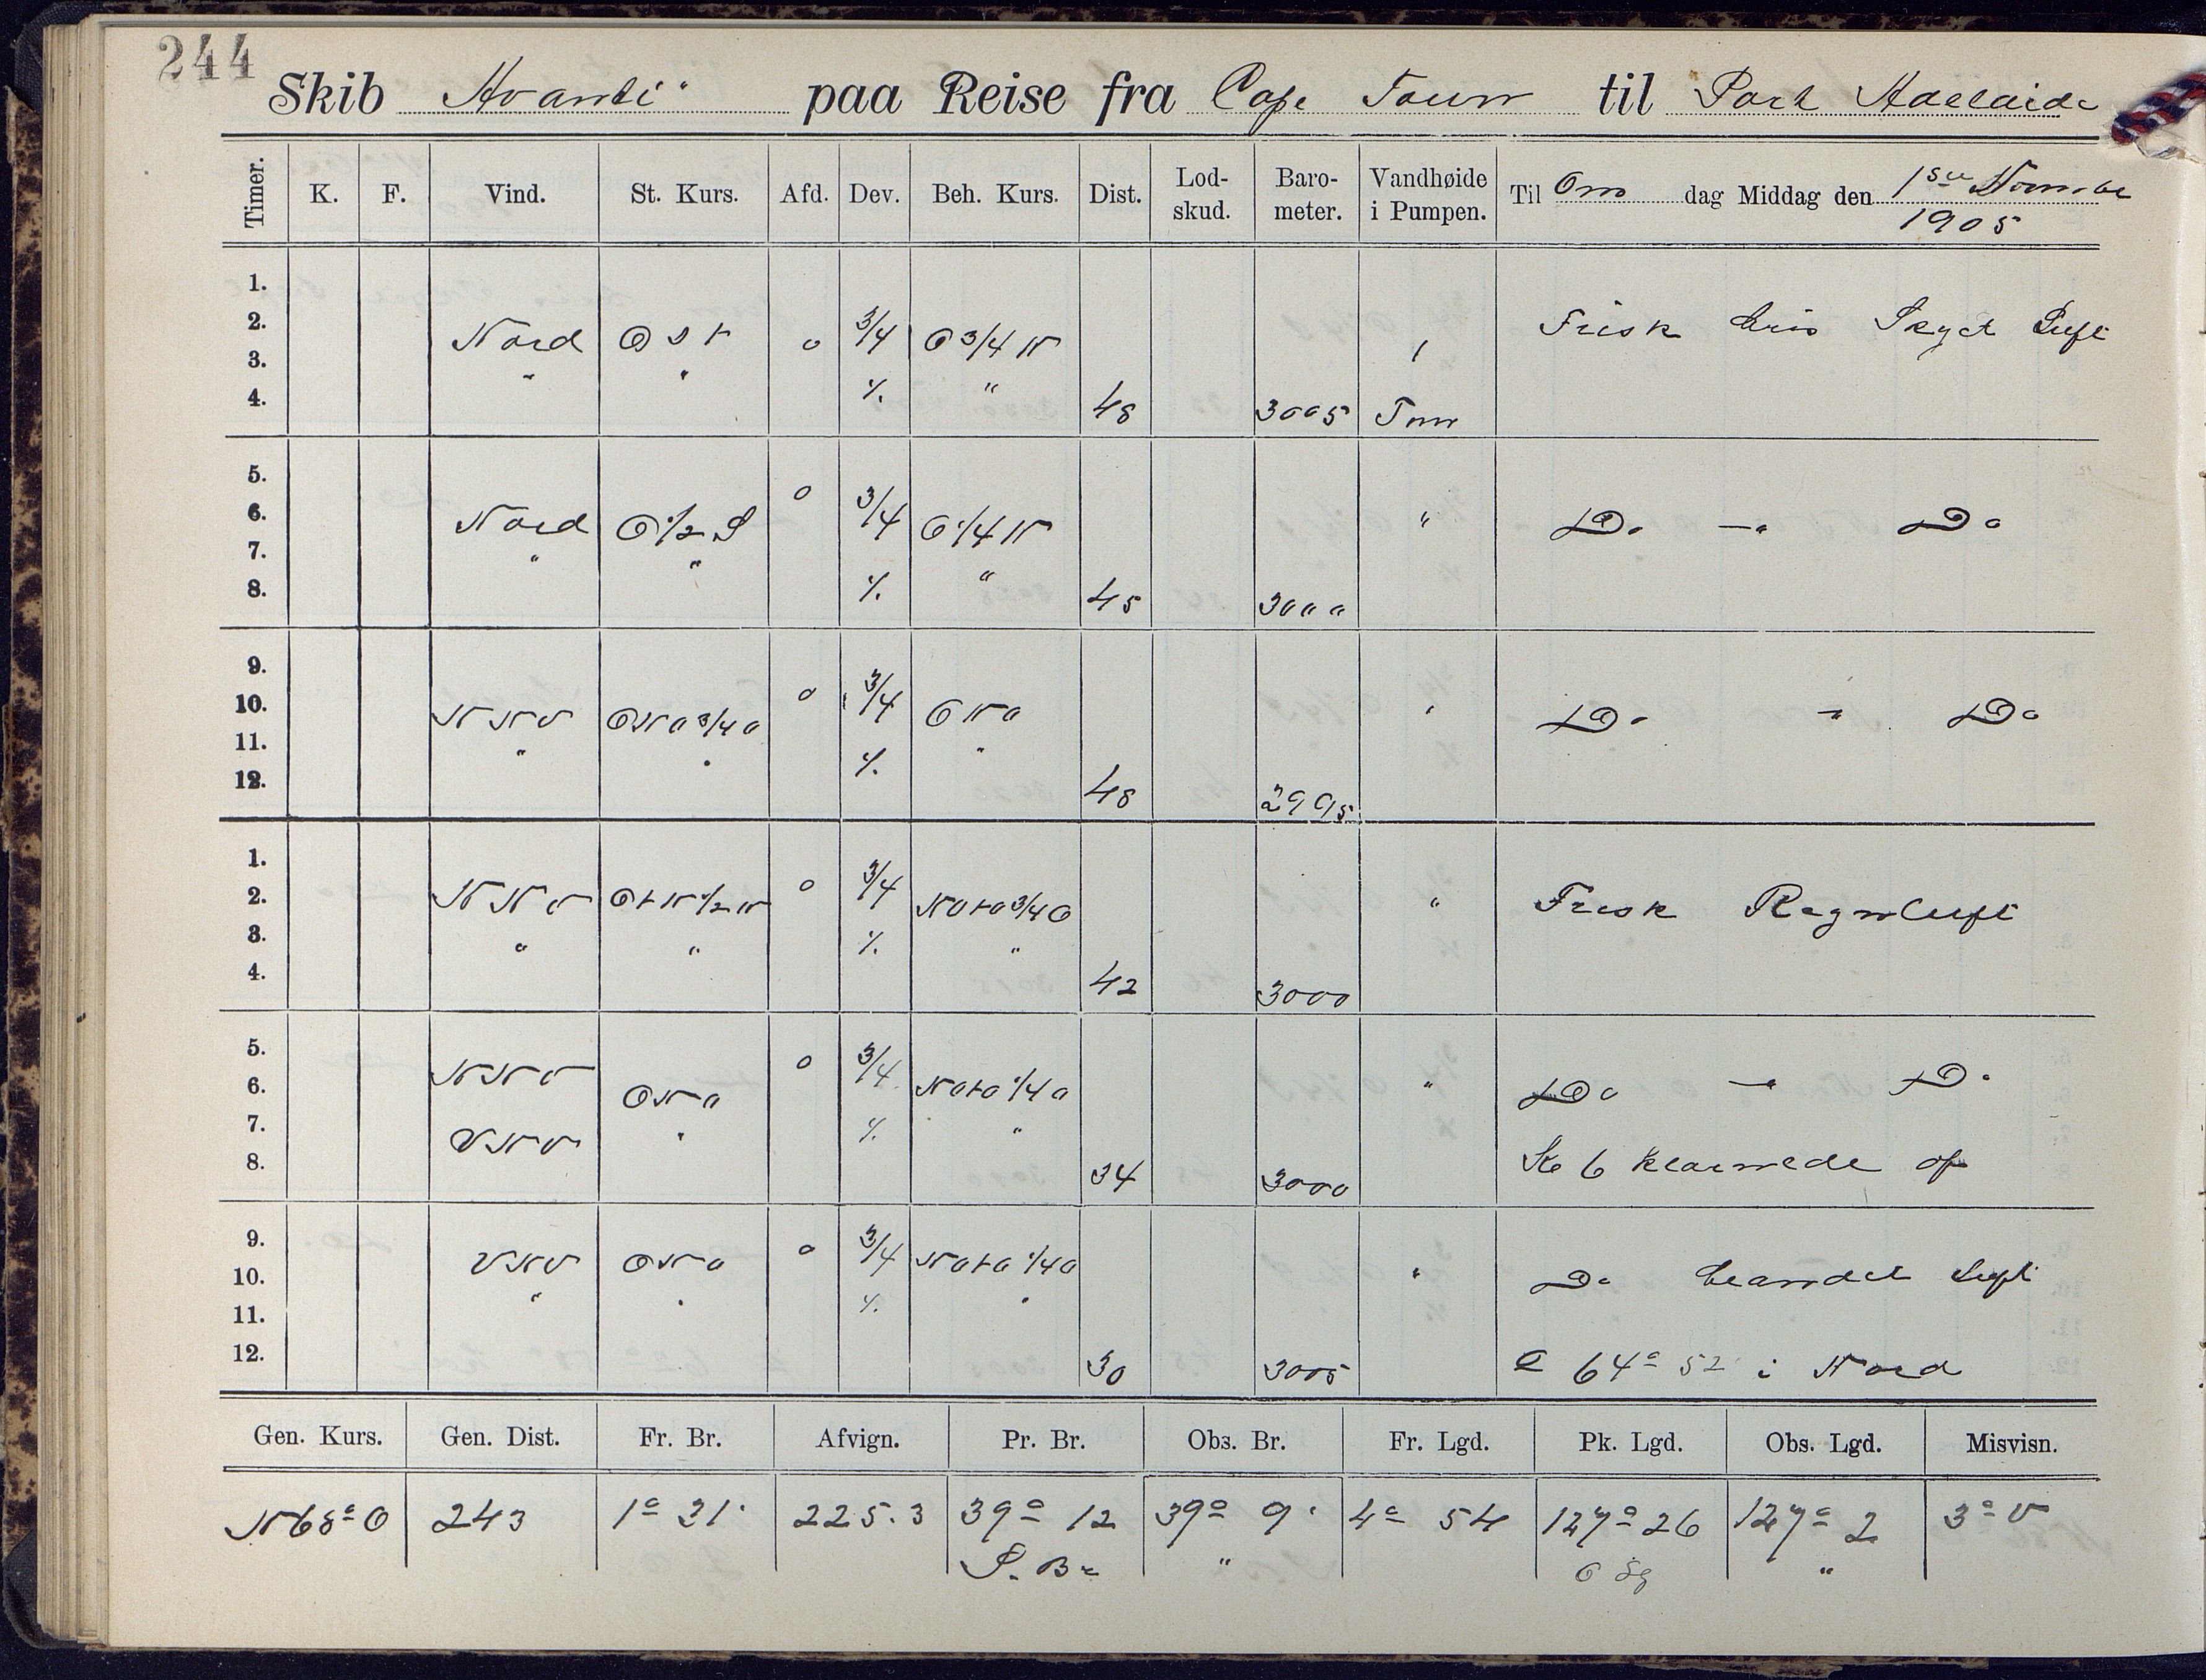 244
Skib Avanti" paa Reise fra Cape Town til Port Adelaide
Timer. K. F. Vind. St. Kurs. Afd. Dev. Beh. Kurs. Dist. Lod-skud. Baro-meter. Vandhøide i Pumpen. Til Ons dag Middag den 1ste November
1905
1.
2. Nord O t S 0 3/4 O 3/4 N 1 Frisk bris Skyet Luft
3. " " % "
4. 48 3005 Tom
5. 0
6. Nord O 1/2 S 3/4 O 1/4 N " Do — " Do
7. " " % "
8. 45 3000
9.
10. NNV ONO 3/4 O 0 3/4 ONO " Do " Do
11. " " % "
12. 48 2995
1.
2. NNV OtN 1/2 N 0 3/4 NOtO 3/4 O " Frisk Regnluft
3. " " % "
4. 42 3000
5. NNV 0 3/4
6. ONO NOtO 1/4 O " Do — " Do
7. VNV " % "
8. 34 3000 Kl 6 klarnede op
9. 0 3/4
10. VNV ONO NOtO 1/4 O " Do blandet Luft
11. " " % "
12. 30 3005 64° 52' i Nord
Gen. Kurs. Gen. Dist. Fr. Br. Afvign. Pr. Br. Obs. Br. Fr. Lgd. Pk. Lgd. Obs. Lgd. Misvisn.
N 68° O 243 1° 31' 225.3 39° 12 39° 9' 4° 54 127° 26 127° 2 3° V
S. Br " O Lg "